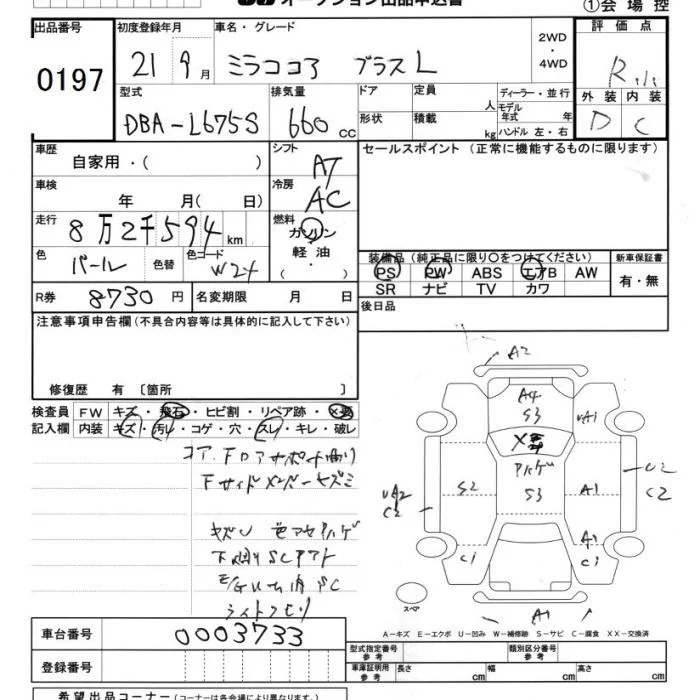 オークション出品申込書
①会場控
出品番号 初度登録年月 車名・グレード 評価点
0197 21 9月 ミラココア プラスL 2WD・4WD R
型式 排気量 ドア 定員 人 ディーラー・並行 外装 内装
DBA-L675S 660 cc 形状 積載 kg モデル年式 年 D C
ハンドル 左・右
車歴 自家用・( ) シフト AT セールスポイント (正常に機能するものに限ります)
車検 年 月( 日) 冷房 AC
走行 8万2千594 km 燃料 ガソリン・軽油・( )
色 パール 色替 色コード W24
装備品 (純正品に限り○をつけてください) 新車保証書
PS PW ABS エアB AW 有・無
SR ナビ TV カワ
R券 8730円 名変期限 月 日 後日品
注意事項申告欄(不具合内容等は具体的に記入して下さい)
修復歴 有 [箇所 ]
検査員記入欄 FW キズ・飛石・ヒビ割・リペア跡・X
内装 キズ・汚レ・コゲ・穴・スレ・キレ・破レ
コア、Fロアサポート曲り
Fサイドメンバーキズミ
キズU 色アセ ハゲ
下廻りSC
ライトクモリ
A2
A4
S3
UA1
X
ハゲ
S3
S2
A1
UA2
C2
U2
C2
C1
A1
C1
A1
スペア
A-キズ E-エクボ U-凹み W-補修跡 S-サビ C-腐食 XX-交換済
車台番号 0003733
登録番号
型式指定番号 参考 類別区分番号 参考
車庫証明用 参考 長さ cm 幅 cm 高さ cm
希望出品コーナー (コーナーは各会場により異なります)